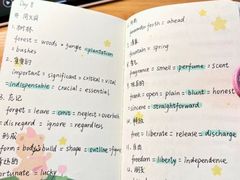 Day 8
forest = woods = jungle = plantation
= bushes
important = significant = critical = vital
= indispensable = crucial = essential
3. 忘记
forget = leave = omit = neglect = overlook
= disregard = ignore = regardless
形成
form = build = shape = outline = figure
fortunate = lucky
forth = ahead
fountain = spring
fragrance = smell = perfume = scent
frank = open = plain = blunt = honest
= sincere = straightforward
free = liberate = release = discharge
freedom = liberty = independence